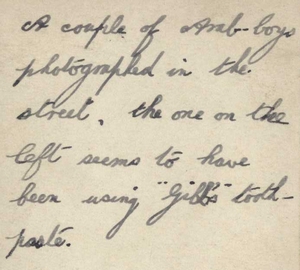 A couple of Arab-boys
photographed in the
street, the one on the
left seems to have
been using "Gibb's" tooth-
paste.